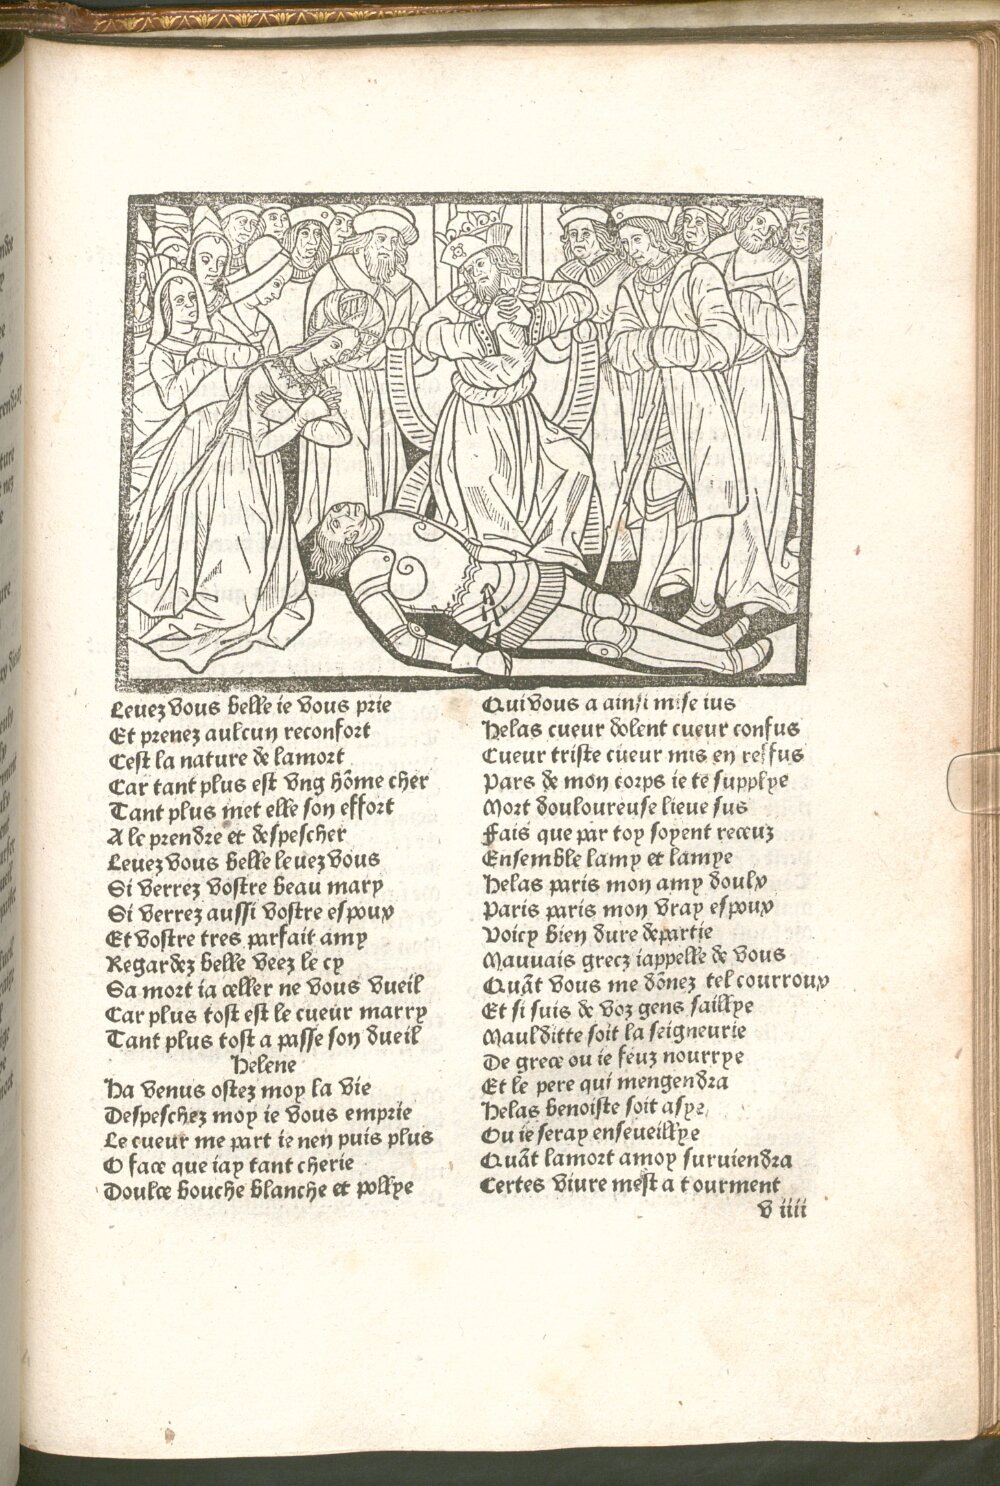 Leuez vous belle ie vous prie
Et prenez aulcun reconfort
Cest la nature de lamort
Car tant plus est vng hõme cher
Tant plus met elle son effort
A le prendre et despescher
Leuez vous belle leuez vous
Si verrez vostre beau mary
Si verrez aussi vostre espoux
Et vostre tres parfait amy
Regardez belle veez le cy
Sa mort ia celler ne vous vueil
Car plus tost est le cueur marry
Tant plus tost a passe son dueil
Helene
Ha venus ostez moy la vie
Despeschez moy ie vous emprie
Le cueur me part ie nen puis plus
O face que iay tant cherie
Doulce bouche blanche et pollye
Qui vous a ainsi mise ius
Helas cueur dolent cueur confus
Cueur triste cueur mis en reffus
Pars de mon corps ie te supplye
Mort douloureuse lieue sus
Fais que par toy soyent receuz
Ensemble lamy et lamye
Helas paris mon amy doulx
Paris paris mon vray espoux
Voicy bien dure departie
Mauuais grecz iappelle de vous
Quãt vous me dõnez tel courroux
Et si suis de voz gens saillye
Maulditte soit la seigneurie
De grece ou ie feuz nourrye
Et le pere qui mengendra
Helas benoiste soit asye
Ou ie seray enseueillye
Quãt lamort amoy suruiendra
Certes viure mest a tourment
v iiii